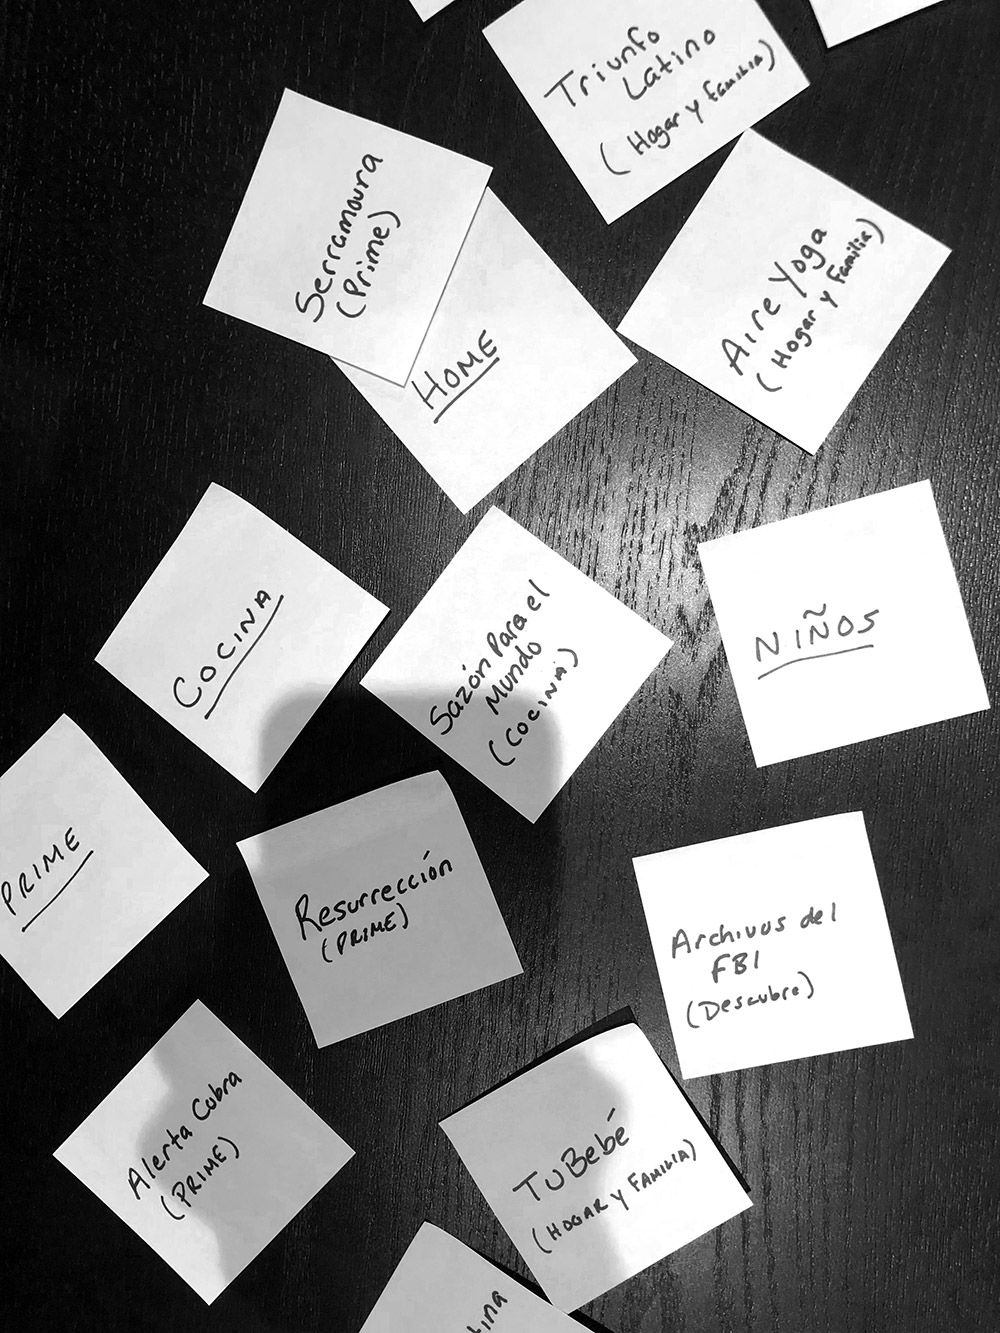 Triunfo
Latino
(Hogar y Familia)
Serramoura
(Prime)
HOME
Aire Yoga
(Hogar y Familia)
COCINA
Sazón Para el
Mundo
(COCINA)
NIÑOS
PRIME
Resurrección
(PRIME)
Archivos del
FBI
(Descubre)
Alerta Cobra
(PRIME)
Tu Bebé
(HOGAR y FAMILIA)
ina